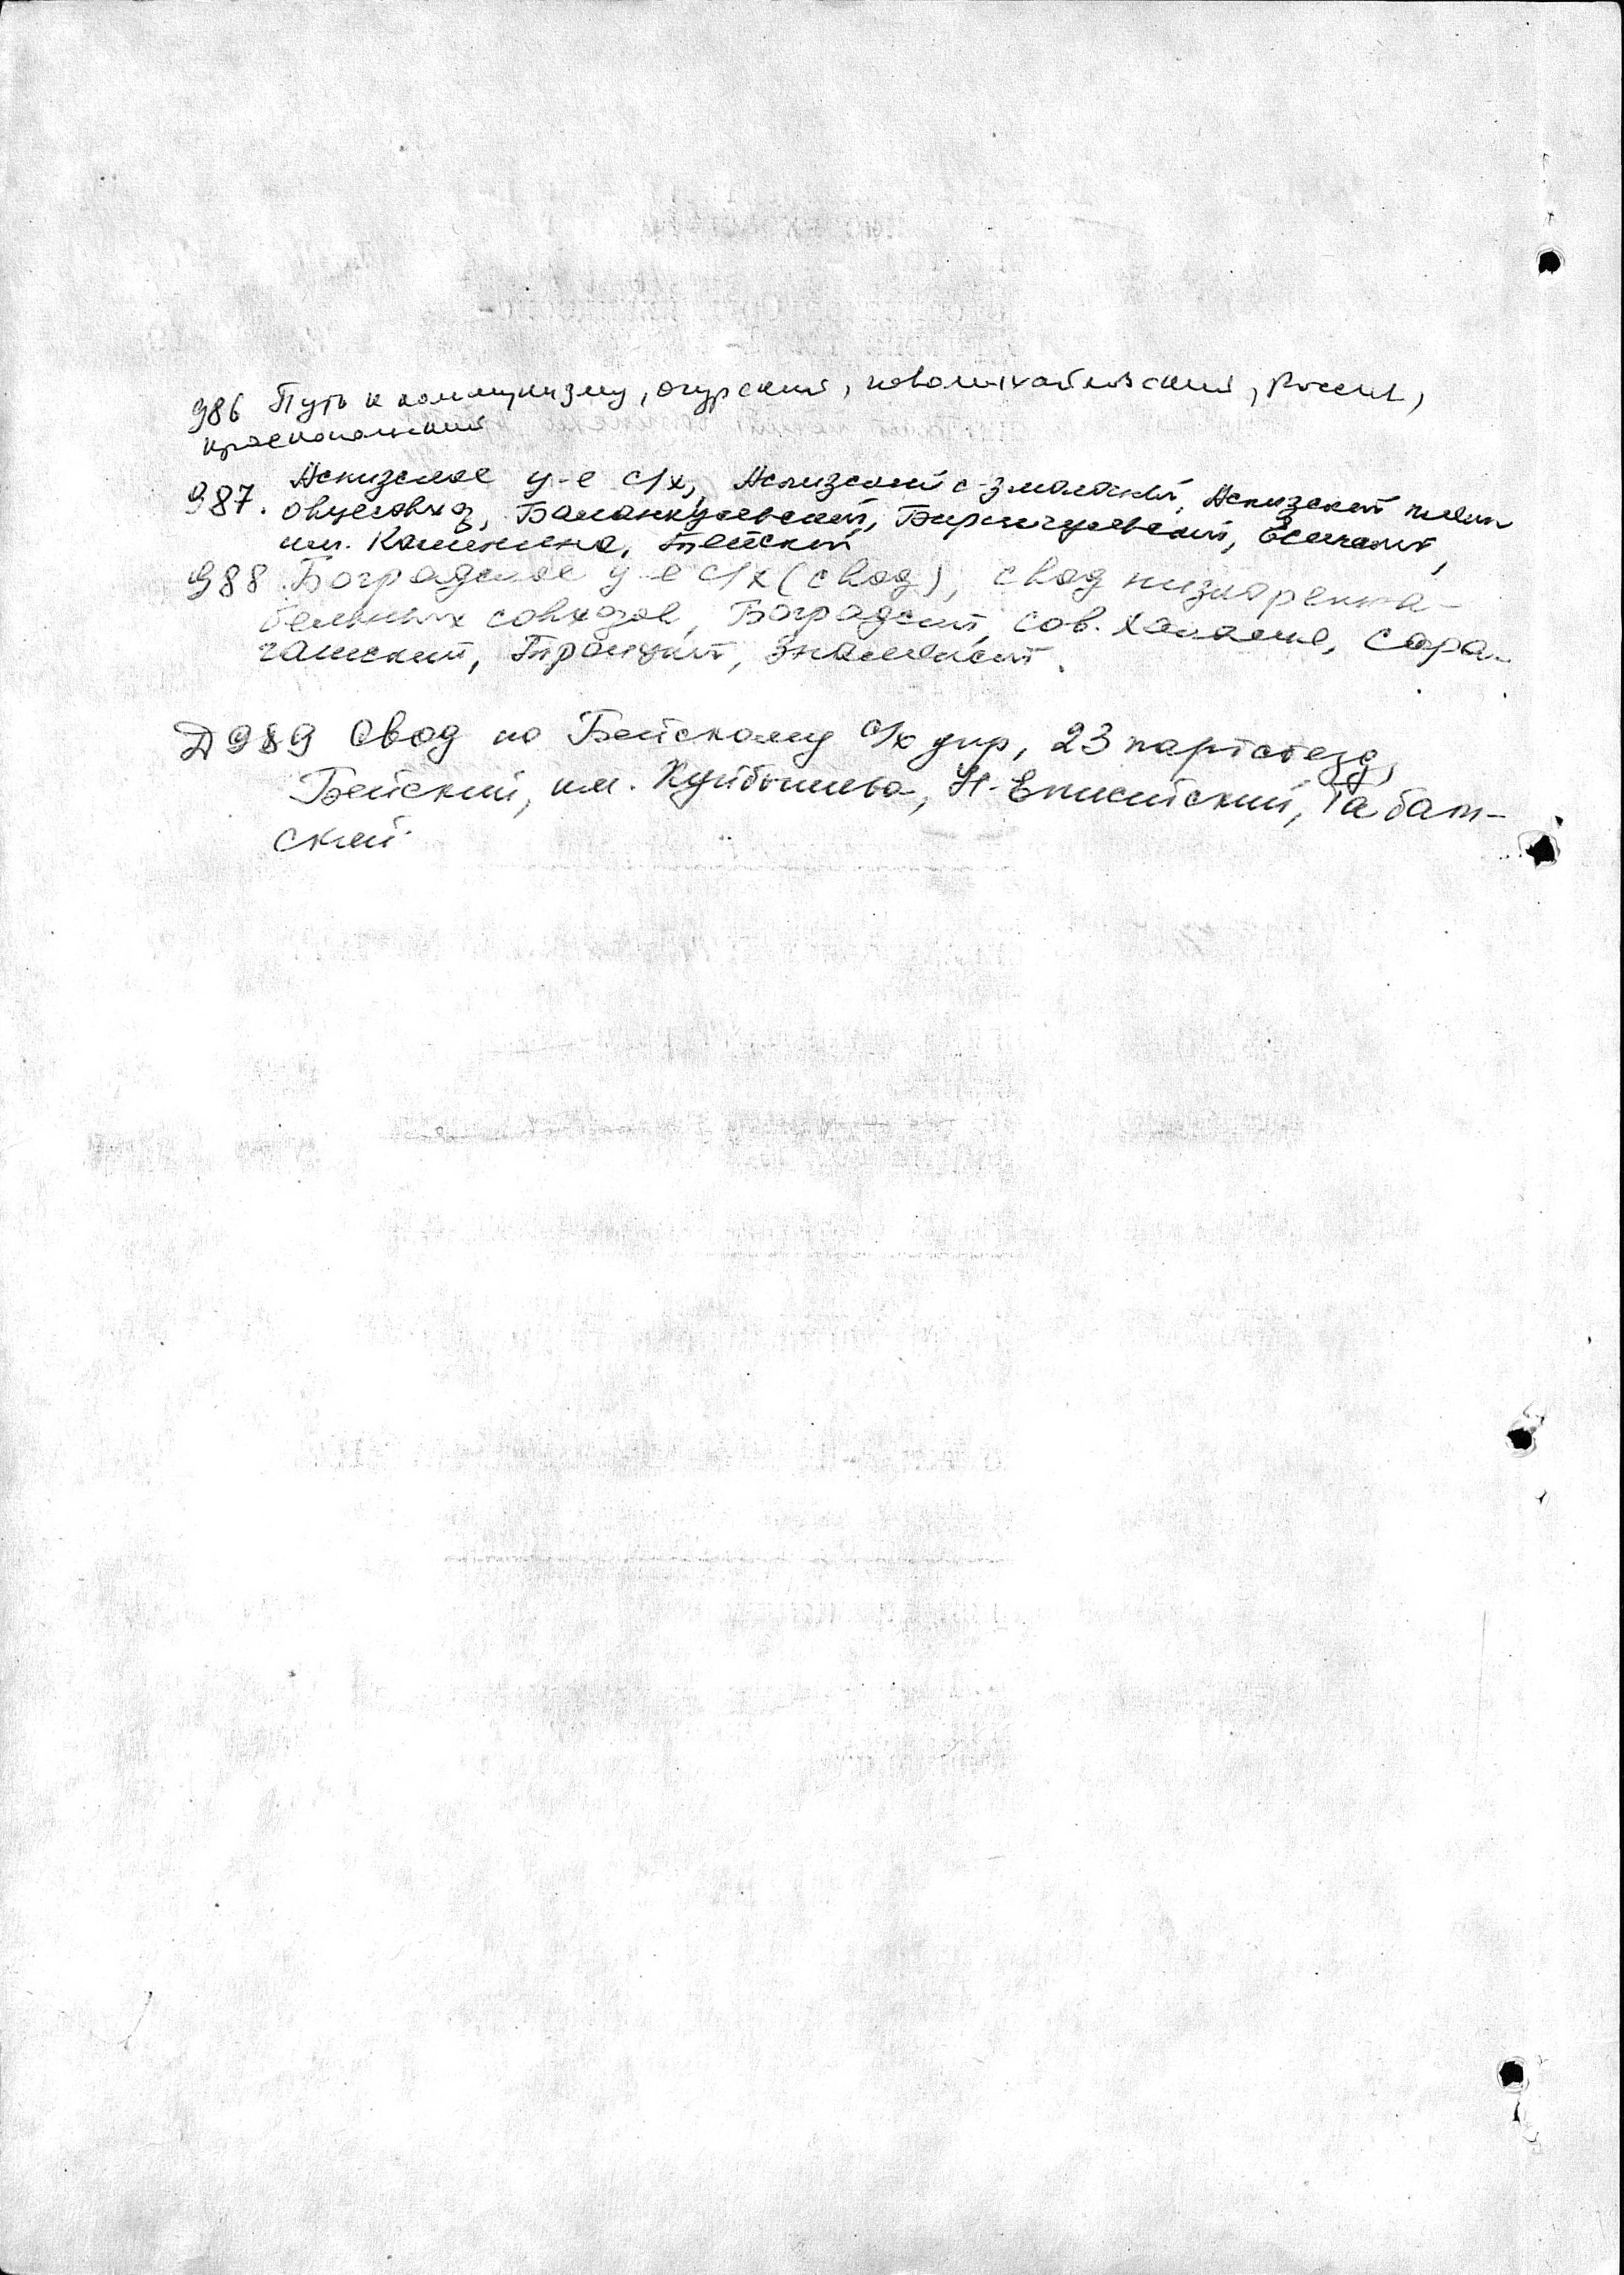 986 Путь к коммунизму, огурский, новомихайловский, Россия,
краснопольский
987. Аскизское у-е с/х, Аскизский, Аскизский плем
овцесовхоз, Баланкулевский, Бирикчулевский, Есинский,
им. Калинина, Тейский
988 Боградское у-е с/х (свод), свод низкорента-
бельных совхозов, Боградский, сов. Хакасия, Сара-
гашский, Троицкий, Знаменский.
Д 989 Свод по Бейскому с/х упр, 23 партсъезд,
Бейский, им. Куйбышева, Н-Енисейский, Табат-
ский.